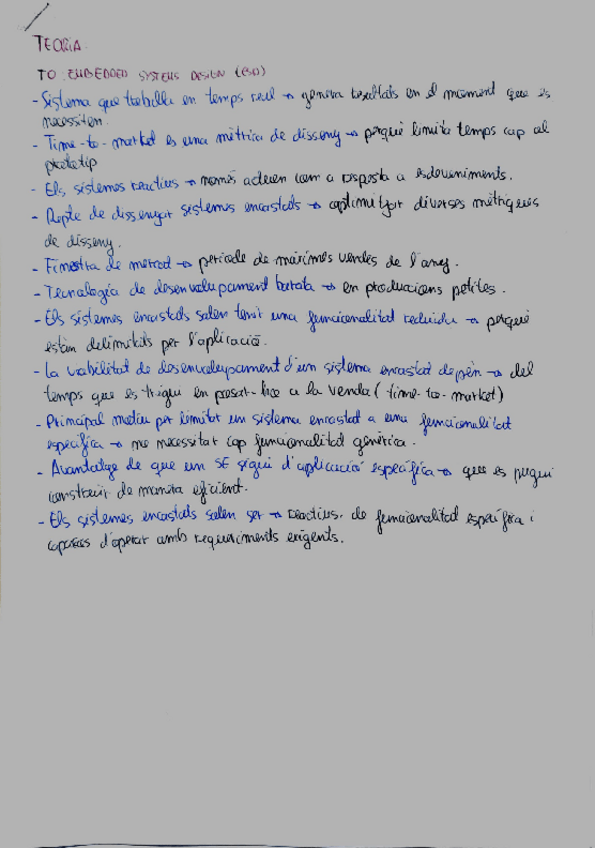 TEORIA.
T0. EMBEDDED SYSTEMS DESIGN (ESD)
- Sistema que treballa en temps real → genera resultats en el moment que es
necessiten.
- Time-to-market es una mètrica de disseny → perquè limita temps cap al
prototip
- Els sistemes reactius → només actuen com a resposta a esdeveniments.
- Repte de dissenyar sistemes encastats → optimitzar diverses mètriques
de disseny.
- Finestra de mercat → periode de màximes vendes de l'any.
- Tecnologia de desenvolupament barata → en produccions petites.
- Els sistemes encastats solen tenir una funcionalitat reduida → perquè
estàn delimitats per l'aplicació.
- La viabilitat de desenvolupament d'un sistema encastat depèn → del
temps que es trigui en posar-lo a la venda (time-to-market)
- Principal motiu per limitar un sistema encastat a una funcionalitat
especifica → no necessitar cap funcionalitat genèrica.
- Avantatge de que un SE sigui d'aplicació especifica → que es pugui
construir de manera eficient.
- Els sistemes encastats solen ser → reactius, de funcionalitat especifica i
capaços d'operar amb requeriments exigents.